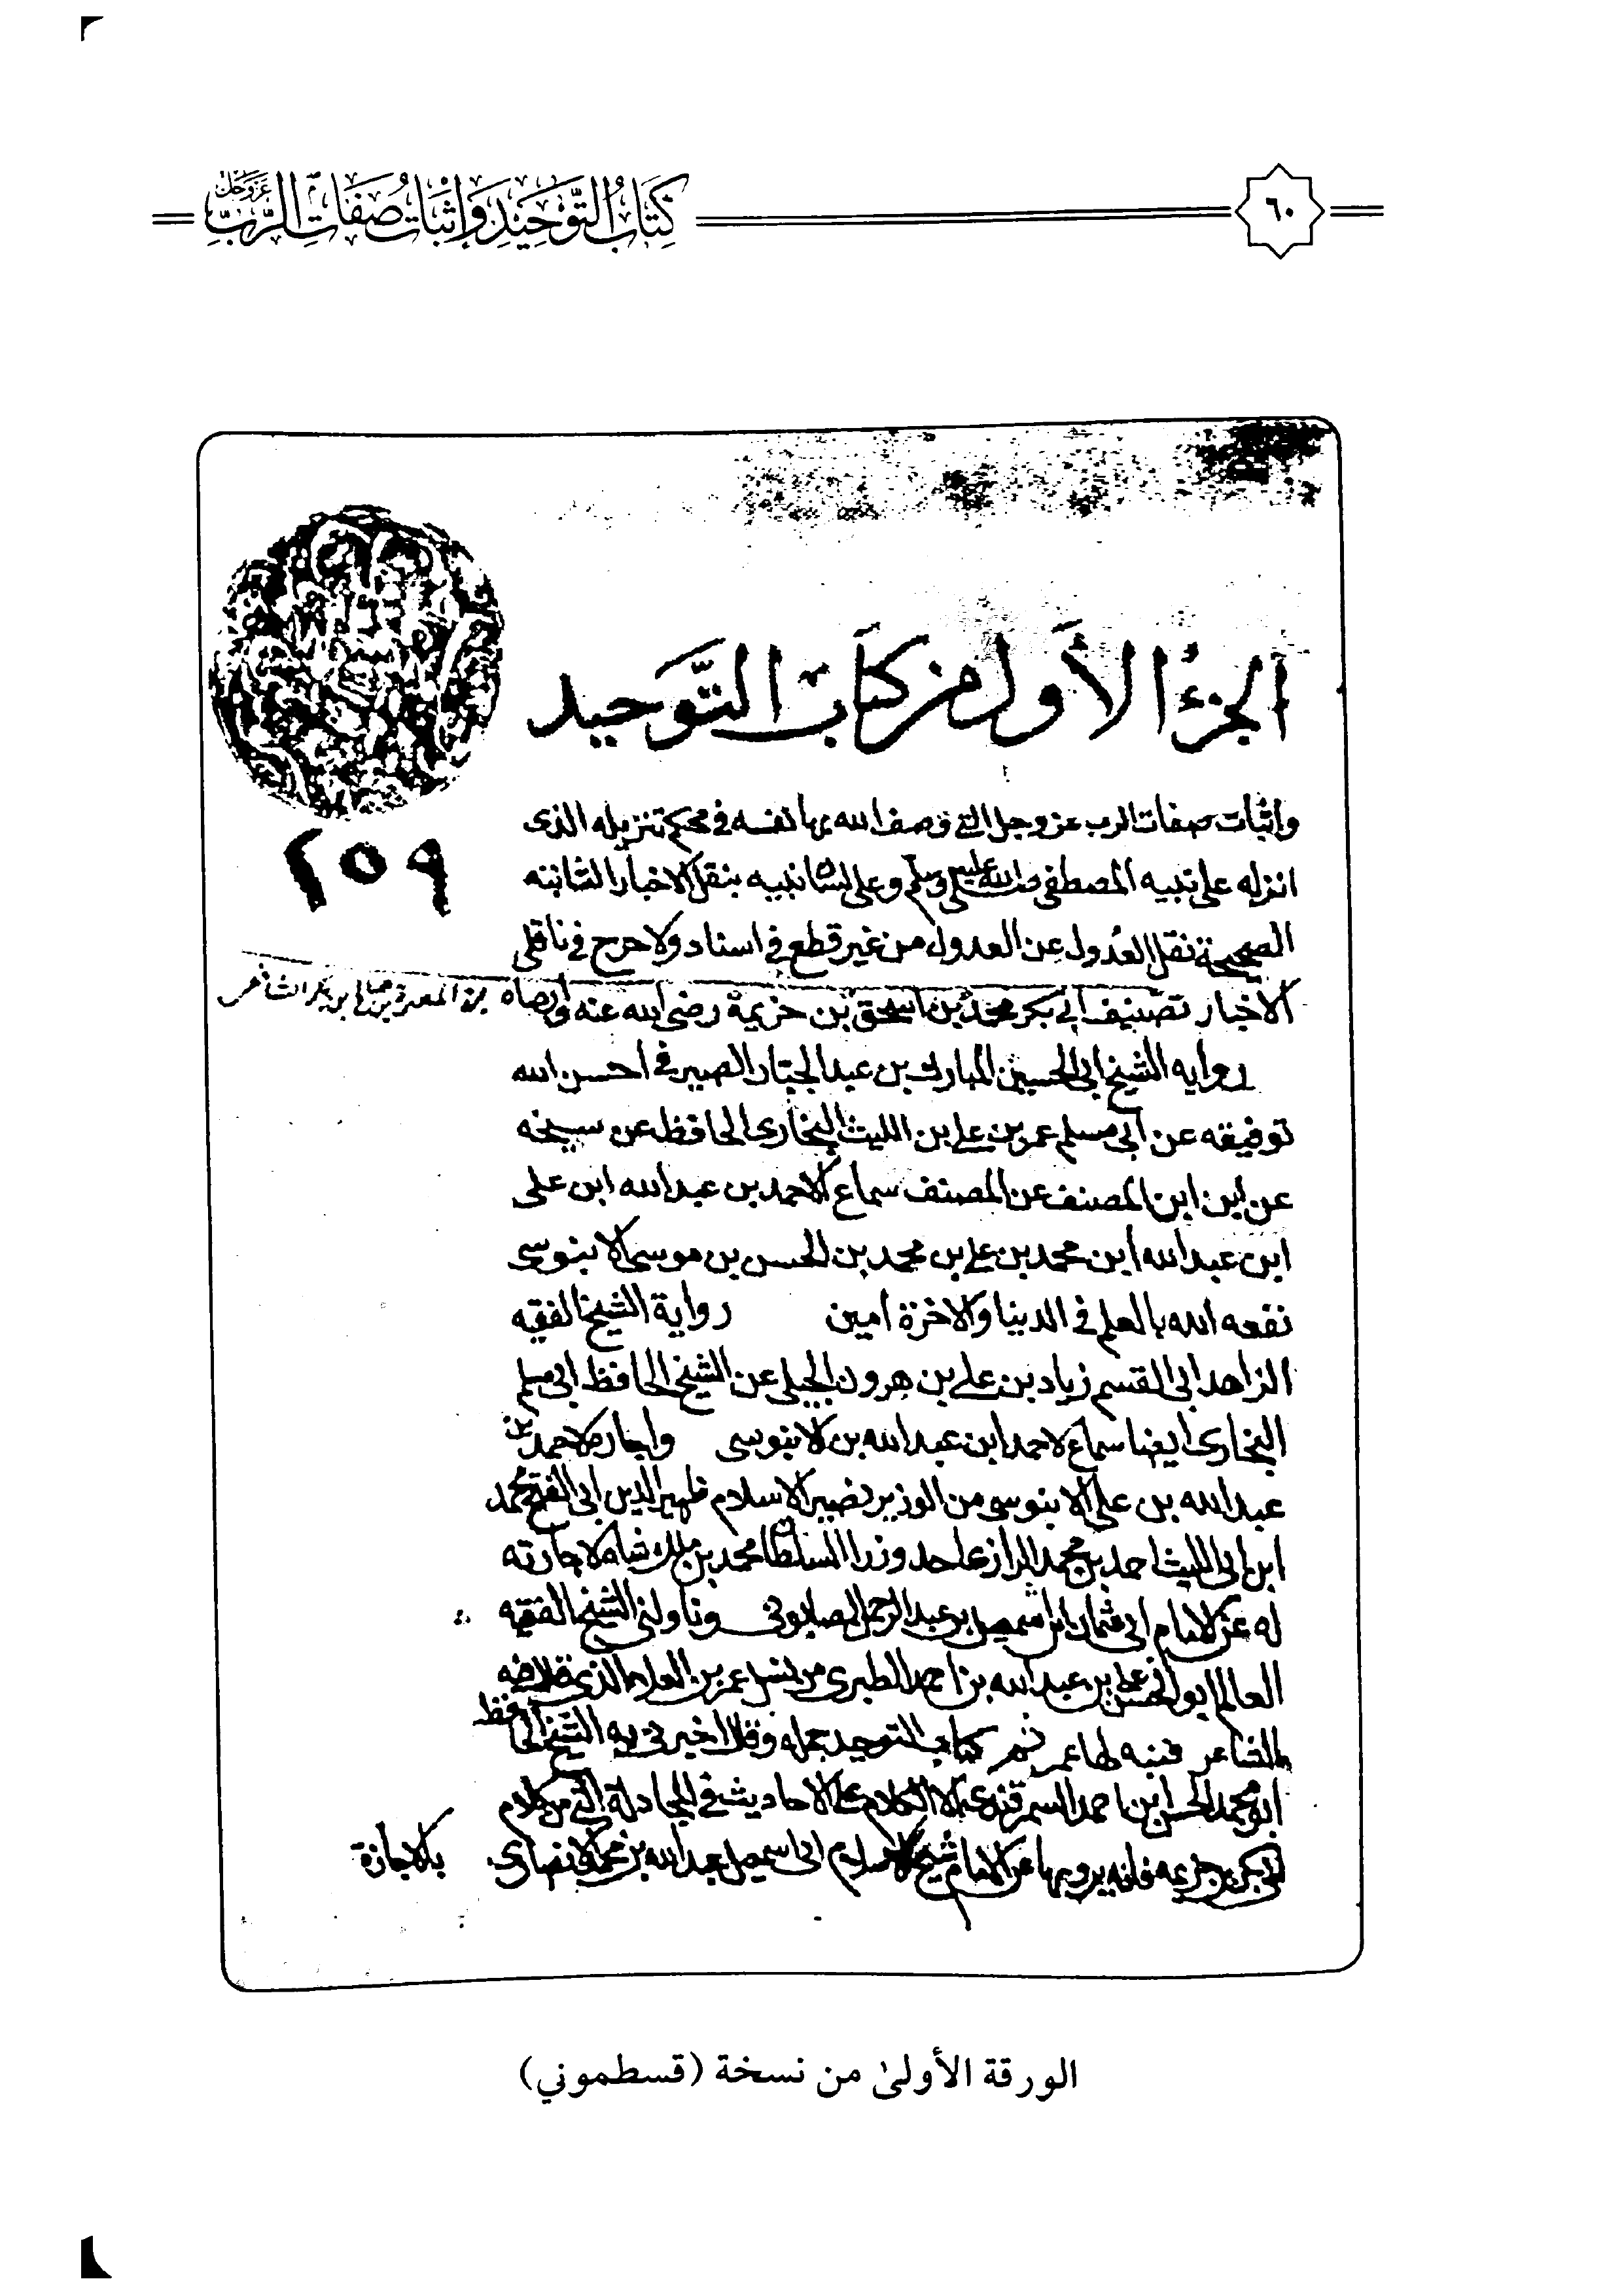 ٦٠
كِتَابُ التَّوْحِيدِ وَإِثْبَاتِ صِفَاتِ الرَّبِّ عَزَّ وَجَلَّ
الجزءُ الأَول من كتاب التَّوحيد
واثبات صفات الرب عز وجل التي وصف الله بها نفسه في محكم تنزيله الذى
انزله على نبيه المصطفى صلى الله عليه وسلم وعلى لسان نبيه بنقل الاخبار الثابته
الصحيحة نقل العدول عن العدول من غير قطع في اسناد ولا جرح في ناقلى
الاخبار تصنيف ابي بكر محمد بن اسحق بن خزيمة رضى الله عنه وارضاه
٢٥٩
روايه الشيخ ابى الحسين المبارك بن عبد الجبار الصيرفي أحسن الله
توفيقه عن أبى مسلم عمر بن علي بن الليث البخارى الحافظ عن
عن ابن ابن المصنف عن المصنف سماع لاحمد بن عبد الله ابن على
ابن عبد الله ابن محمد بن علي بن محمد بن الحسن بن موسى الابنوسى
نفعه الله بالعلم في الدنيا والاخرة امين رواية الشيخ الفقيه
الزاهد ابى القسم زياد بن علي بن هرون الجيلى عن الشيخ الحافظ ابى مسلم
البخارى ايضا سماع لاحمد ابن عبد الله بن الابنوسى واجازه لاحمد بن
عبد الله بن على الابنوسى من الوزير نصير الاسلام ظهير الدين ابى الفتح محمد
ابن ابى الليث احمد بن محمد الرازى احد وزرا السلطان محمد بن ملك شاه لاجازته
له عن الامام ابى عثمان اسمعيل بن عبد الرحمن الصابونى وناولنى الشيخ الفقيه
العالم ابو الحسن على بن عبد الله بن احمد الطبرى من عمر بن
الشاعر كتاب التوحيد جمله وقال اخبرنى به الشيخ الحافظ
ابو محمد الحسن ابن احمد السمرقندى الا الكلام على الاحاديث في المجادلة التى من كلام
ابى بكر بن خزيمه فانه يرويها عن الامام شيخ الاسلام ابى اسمعيل عبد الله بن محمد الانصارى بالاجازة
الورقة الأولىٰ من نسخة (قسطموني)